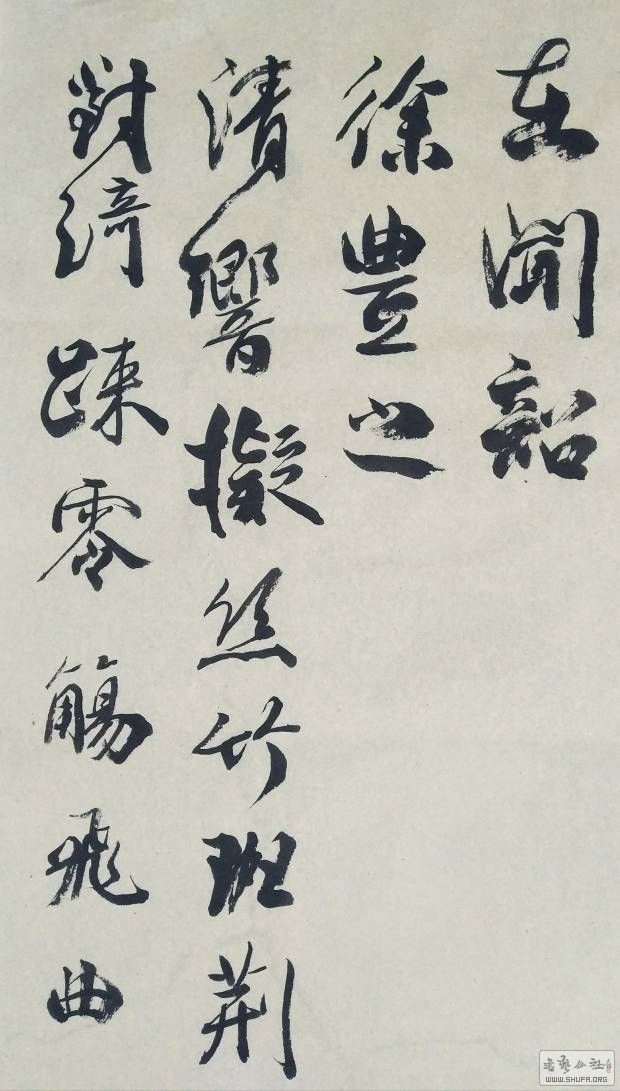 在聞韶
徐豊之
清響擬絲竹班荆
對綺疎零觴飛曲
書藝公社
WWW.SHUFA.ORG